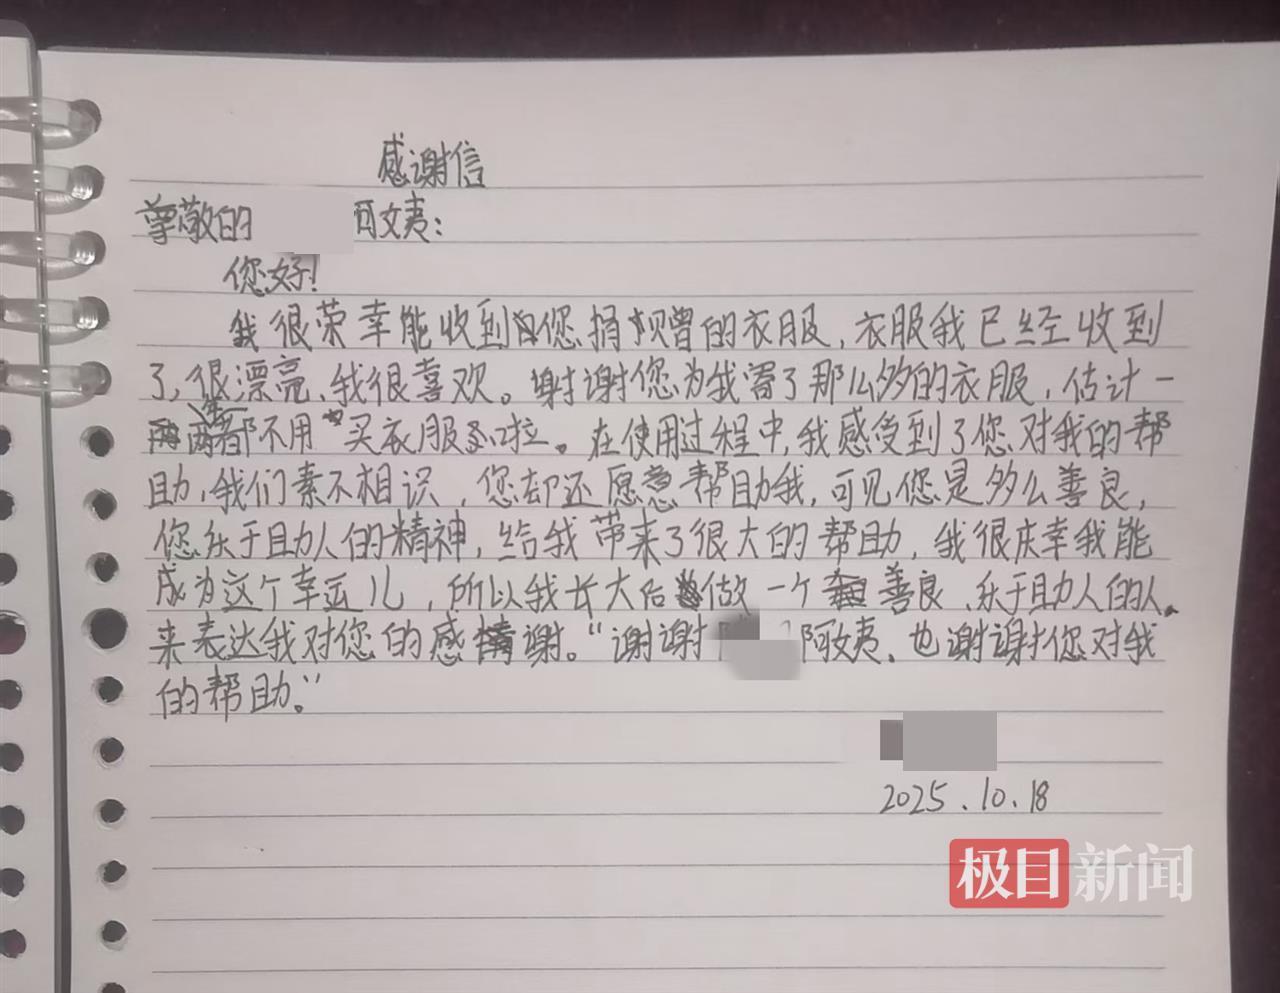 感谢信
尊敬的 阿姨：
您好！
我很荣幸能收到您捐赠的衣服，衣服我已经收到
了，很漂亮、我很喜欢。谢谢您为我寄了那么多的衣服，估计一
两年都不用买衣服啦。在使用过程中，我感受到了您对我的帮
助，我们素不相识，您却还愿意帮助我，可见您是多么善良，
您乐于助人的精神，给我带来了很大的帮助，我很庆幸我能
成为这个幸运儿，所以我长大后做一个善良、乐于助人的人
来表达我对您的感谢。“谢谢 阿姨，也谢谢您对我
的帮助。”
2025.10.18
极目新闻